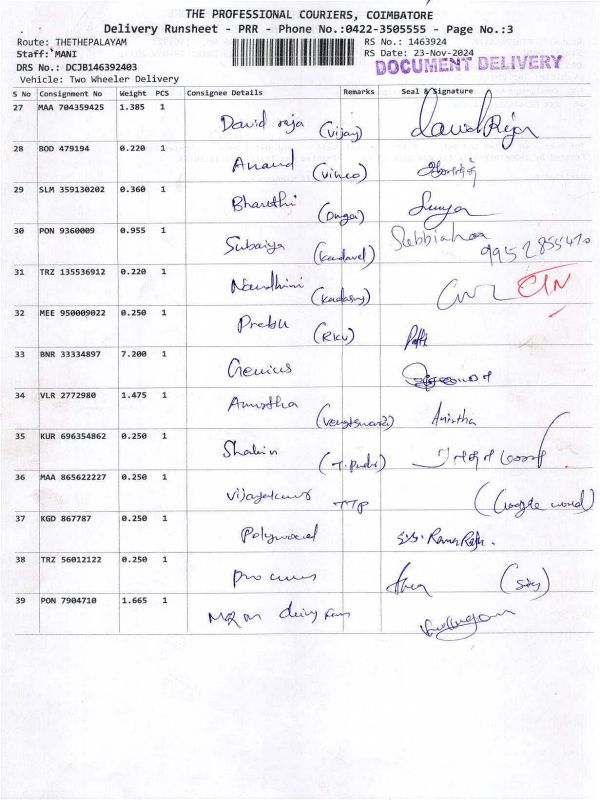 THE PROFESSIONAL COURIERS, COIMBATORE
Delivery Runsheet - PRR - Phone No.:0422-3505555 - Page No.:3
Route: THETHEPALAYAM RS No.: 1463924
Staff: MANI RS Date: 23-Nov-2024
DRS No.: DCJB146392403 DOCUMENT DELIVERY
Vehicle: Two Wheeler Delivery
S No Consignment No Weight PCS Consignee Details Remarks Seal & Signature
27 MAA 704359425 1.385 1 David raja (Vijay) David Raja
28 BOD 479194 0.220 1 Anand (Vinco)
29 SLM 359130202 0.360 1 Bharathi
30 PON 9360009 0.955 1 Subaiya (kadavel) Subbiah 9952855470
31 TRZ 135536912 0.220 1 Nandhini
32 MEE 950009022 0.250 1 Prabu (RKV)
33 BNR 33334897 7.200 1 Genius
34 VLR 2772980 1.475 1 Amirtha Amirtha
35 KUR 696354862 0.250 1
36 MAA 865622227 0.250 1 Vijayakumar TTP (Google world)
37 KGD 867787 0.250 1 Polywood
38 TRZ 56012122 0.250 1
39 PON 7904710 1.665 1